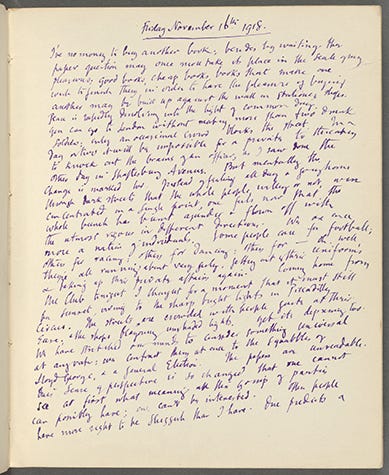 Friday November 16th 1918.
I've no money to buy another book; besides by waiting the
paper question may once more take its place in the scale of my
pleasures, good books, cheap books, books that make one
want to finish them in order to have the pleasure of buying
another may be built up against the wall in stationers' shops.
Peace is rapidly dissolving into the light of common day.
You can go to London without meeting more than two drunk
soldiers; only an occasional crowd blocks the street. In a
day or two it will be impossible for a private to threaten
to knock out the brains of an officer, as I saw done the
other day in Shaftesbury Avenue. But mentally the
change is marked too. Instead of feeling all day & going home
through dark streets that the whole people, willing or not, were
concentrated on a single point, one feels now that the
whole bunch has burst asunder & flown off with
the utmost vigour in different directions. We are once
more a nation of individuals. Some people care for football;
others for racing; others for dancing; others for — oh well,
they're all running about very gaily, getting out of their uniforms
& taking up their private affairs again. Coming home from
the Club tonight I thought for a moment that it must still
be sunset, owing to the sharp bright lights in Piccadilly
Circus. The streets are crowded with people quite at their
ease; & the shops blazoning unshaded lights. Yet its depressing too.
We have stretched our minds to consider something universal
at any rate; we contract them at once to the squabbles of
Lloyd George, & a General Election. The papers are unreadable.
One's sense of perspective is so changed that one cannot
see at first what meaning all this gossip of parties
can possibly have; one can't be interested. Other people
have more right to be sluggish than I have. One predicts a